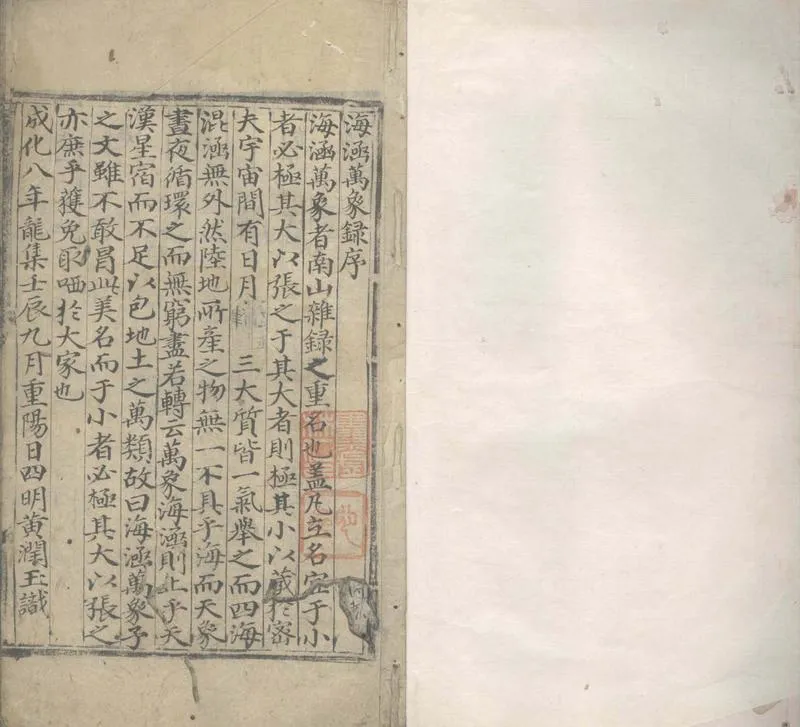 海涵萬象録序
海涵萬象者南山雜録之重名也盖凡立名宜于小
者必極其大以張之于其大者則極其小以藏於密
夫宇宙間有日月三大質皆一氣舉之而四海
混涵無外然陸地所產之物無一不具乎海而天象
晝夜循環之而無窮盡若轉云萬象海涵則止乎天
漢星宿而不足以包地土之萬類故曰海涵萬象予
之文雖不敢冒此美名而于小者必極其大以張之
亦庶乎獲免取哂於大家也
成化八年龍集壬辰九月重陽日四明黄潤玉識